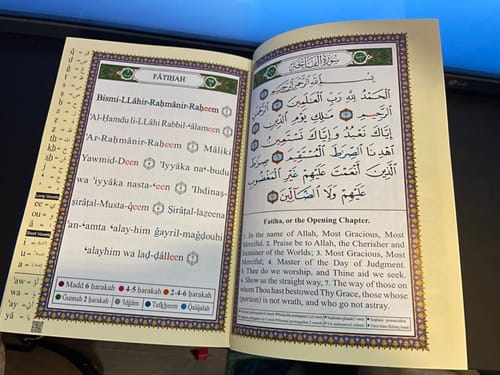 FÂTIHAH
Bismi-LLâhir-Raḥmânir-Raḥeem
'Al-Ḥamdu li-LLâhi Rabbil-ʿâlameen
'Ar-Raḥmânir-Raḥeem Mâliki
Yawmid-Deen 'Iyyâka naʿ-budu
wa 'iyyâka nasta-ʿeen 'Ihdinaṣ-
ṣirâṭal-Musta-q̂eem Ṣirâṭal-laẓeena
an-ʿamta ʿalay-him ġayril-maġḍoubi
ʿalayhim wa laḍ-ḍâlleen
Madd 6 ḥarakah 4-5 ḥarakah 2-4-6 ḥarakah
Ġunnah 2 ḥarakah 'Idġâm Tafkheem Qalqalah
سُورَةُ الْفَاتِحَةِ
بِسْمِ اللَّهِ الرَّحْمَٰنِ الرَّحِيمِ
الْحَمْدُ لِلَّهِ رَبِّ الْعَالَمِينَ ٢ الرَّحْمَٰنِ
الرَّحِيمِ ٣ مَالِكِ يَوْمِ الدِّينِ ٤
إِيَّاكَ نَعْبُدُ وَإِيَّاكَ نَسْتَعِينُ ٥
اهْدِنَا الصِّرَاطَ الْمُسْتَقِيمَ ٦ صِرَاطَ
الَّذِينَ أَنْعَمْتَ عَلَيْهِمْ غَيْرِ الْمَغْضُوبِ
عَلَيْهِمْ وَلَا الضَّالِّينَ ٧
Fatiha, or the Opening Chapter.
1. In the name of Allah, Most Gracious, Most
Merciful. 2. Praise be to Allah, the Cherisher and
Sustainer of the Worlds; 3. Most Gracious, Most
Merciful; 4. Master of the Day of Judgment.
5. Thee do we worship, and Thine aid we seek.
6. Show us the straight way, 7. The way of those on
whom Thou hast bestowed Thy Grace, those whose
(portion) is not wrath, and who go not astray.
LG